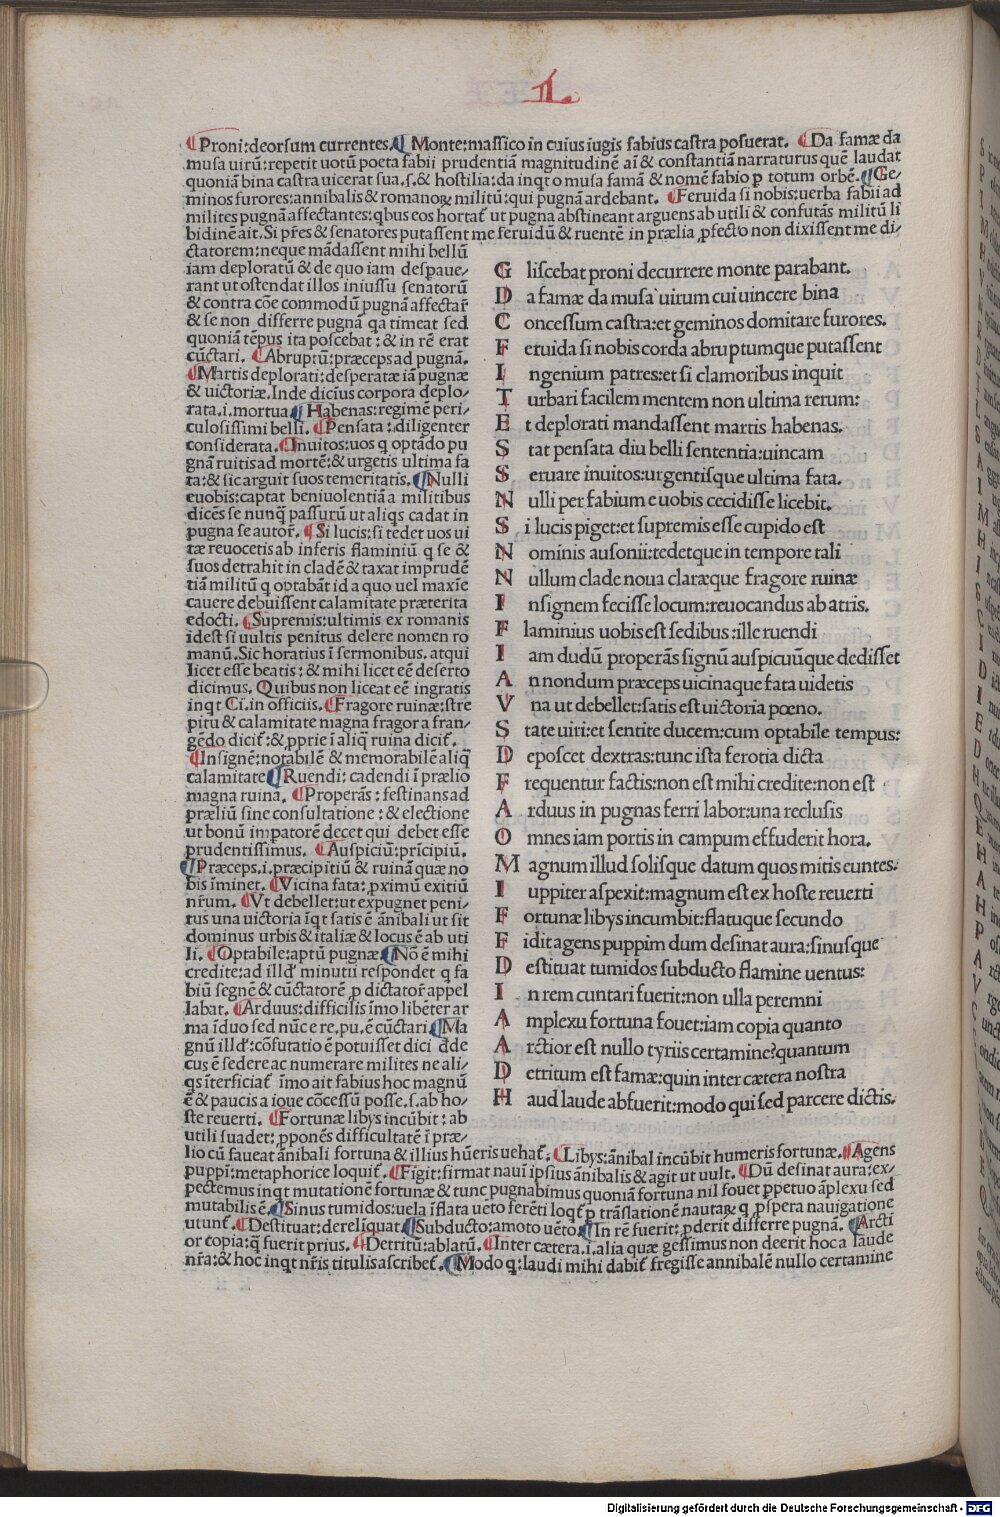 L
¶Proni:deorsum currentes.¶ Monte:massico in cuius iugis fabius castra posuerat. ¶Da famæ da
musa uirū:repetit uotū poeta fabii prudentiā magnitudinē aī & constantiā narraturus quē laudat
quoniā bina castra uicerat sua.s.& hostilia:da inqt o musa famā & nomē fabio p totum orbē.¶Ge-
minos furores:annibalis & romanoꝝ militū:qui pugnā ardebant. ¶Feruida si nobis:uerba fabii ad
milites pugnā affectantes:qbus eos hortat̄ ut pugna abstineant arguens ab utili & confutās militū li
bidinē ait.Si p̄res & senatores putassent me feruidū & ruentē in prælia ,pfecto non dixissent me di/
ctatorem:neque mādassent mihi bellū
iam deploratū & de quo iam despaue/
rant ut ostendat illos iniussu senatorū
& contra cōe commodū pugnā affectar̄
& se non differre pugnā qa timeat sed
quoniā tēpus ita poscebat:& in rē erat
cūctari. ¶Abruptū:præceps ad pugnā.
¶Martis deplorati:desperatæ iā pugnæ
& uictoriæ.Inde dicius corpora deplo/
rata.i.mortua.¶ Habenas:regimē peri/
culosissimi belli. ¶Pensata:diligenter
considerata.¶Inuitos:uos q optādo pu
gnā ruitis ad mortē:& urgetis ultima fa
ta:& sic arguit suos temeritatis.¶Nulli
euobis:captat beniuolentiā a militibus
dicēs se nunq̄ passurū ut aliqs cadat in
pugna se autor̄. ¶Si lucis:si tedet uos ui
tæ reuocetis ab inferis flaminiū q se &
suos detrahit in cladē & taxat imprudē
tiā militū q optabāt id a quo uel maxīe
cauere debuissent calamitate præterita
edocti. ¶Supremis:ultimis ex romanis
idest si uultis penitus delere nomen ro
manū.Sic horatius ī sermonibus.atqui
licet esse beatis:& mihi licet eē deserto
dicimus. Quibus non liceat eē ingratis
inqt Ci.in officiis.¶Fragore ruinæ:stre
pitu & calamitate magna fragor a fran/
gēdo dicit̄:& ,pprie ī aliq ruina dicit̄.
¶Insignē:notabilē & memorabilē aliq̄
calamitate ¶Ruendi:cadendi ī prælio
magna ruina. ¶Properās:festinans ad
præliū sine consultatione:& electione
ut bonū impatorē decet qui debet esse
prudentissimus. ¶Auspiciū:prīcipiū.
¶Præceps.i.præcipitiū & ruinā quæ no
bis īminet. ¶Vicina fata:,pximū exitiū
nr̄um. ¶Vt debellet:ut expugnet peni/
tus una uictoria īqt satis ē ānibali ut sit
dominus urbis & italiæ & locus ē ab uti
li. ¶Optabile:aptū pugnæ ¶Nō ē mihi
credite:ad illd' minutii respondet q fa
biū segnē & cūctatorē p dictator̄ appel
labat. ¶Arduus:difficilis īmo libēter ar
ma īduo sed nūc e re.pu.ē cūctari.¶Ma
gnū illd':cōfutatio ē potuisset dici qd de
cus ē sedere ac numerare milites ne ali/
qs īterficiat̄ īmo ait fabius hoc magnū
ē & paucis a ioue cōcessū posse.s.ab ho/
ste reuerti. ¶Fortunæ libys incūbit:ab
utili suadet:,pponēs difficultatē ī præ/
lio cū faueat ānibali fortuna & illius hūeris uehat̄.¶Libys:ānibal incūbit humeris fortunæ.¶Agens
puppī:metaphorice loquit̄. ¶Figit:firmat nauī ipsius ānibalis & agit ut uult. ¶Dū desinat aura:ex/
pectemus inqt mutationē fortunæ & tunc pugnabimus quoniā fortuna nil fouet ppetuo āplexu sed
mutabilis ē.¶Sinus tumidos:uela īflata uēto ferēti loqt̄ p trāslationē nautaꝝ q ,pspera nauigatione
utunt̄. ¶Destituat:derelīquat.¶Subducto:amoto uēto.¶In rē fuerit:,pderit differre pugnā. ¶Arcti
or copia:q̄ fuerit prius. ¶Detritū:ablatū. ¶Inter cætera.i.alia quæ gessimus non deerit hoc a laude
nr̄a:& hoc inqt nr̄is titulis ascribet̄. ¶Modo q:laudi mihi dabit̄ fregisse annibalē nullo certamine
G liscebat proni decurrere monte parabant.
D a famæ da musa uirum cui uincere bina
C oncessum castra:et geminos domitare furores.
F eruida si nobis corda abruptumque putassent
I ngenium patres:et si clamoribus inquit
T urbari facilem mentem non ultima rerum:
E t deplorati mandassent martis habenas.
S tat pensata diu belli sententia:uincam
S eruare inuitos:urgentisque ultima fata.
N ulli per fabium e uobis cecidisse licebit.
S i lucis piget:et supremis esse cupido est
N ominis ausonii:tedetque in tempore tali
N ullum clade noua claræque fragore ruinæ
I nsignem fecisse locum:reuocandus ab atris.
F laminius uobis est sedibus:ille ruendi
I am dudū properās signū auspicuūque dedisset
A n nondum præceps uicinaque fata uidetis
V na ut debellet:satis est uictoria pœno.
S tate uiri:et sentite ducem:cum optabile tempus:
D eposcet dextras:tunc ista ferotia dicta
F requentur factis:non est mihi credite:non est
A rduus in pugnas ferri labor:una reclusis
O mnes iam portis in campum effuderit hora.
M agnum illud solisque datum quos mitis euntes:
I uppiter aspexit:magnum est ex hoste reuerti
F ortunæ libys incumbit:flatuque secundo
F idit agens puppim dum desinat aura:sinusque
D estituat tumidos subducto flamine uentus:
I n rem cuntari fuerit:non ulla peremni
A mplexu fortuna fouet:iam copia quanto
A rctior est nullo tyriis certamine?quantum
D etritum est famæ:quin inter cætera nostra
H aud laude abfuerit:modo qui sed parcere dictis.
Digitalisierung gefördert durch die Deutsche Forschungsgemeinschaft - DFG